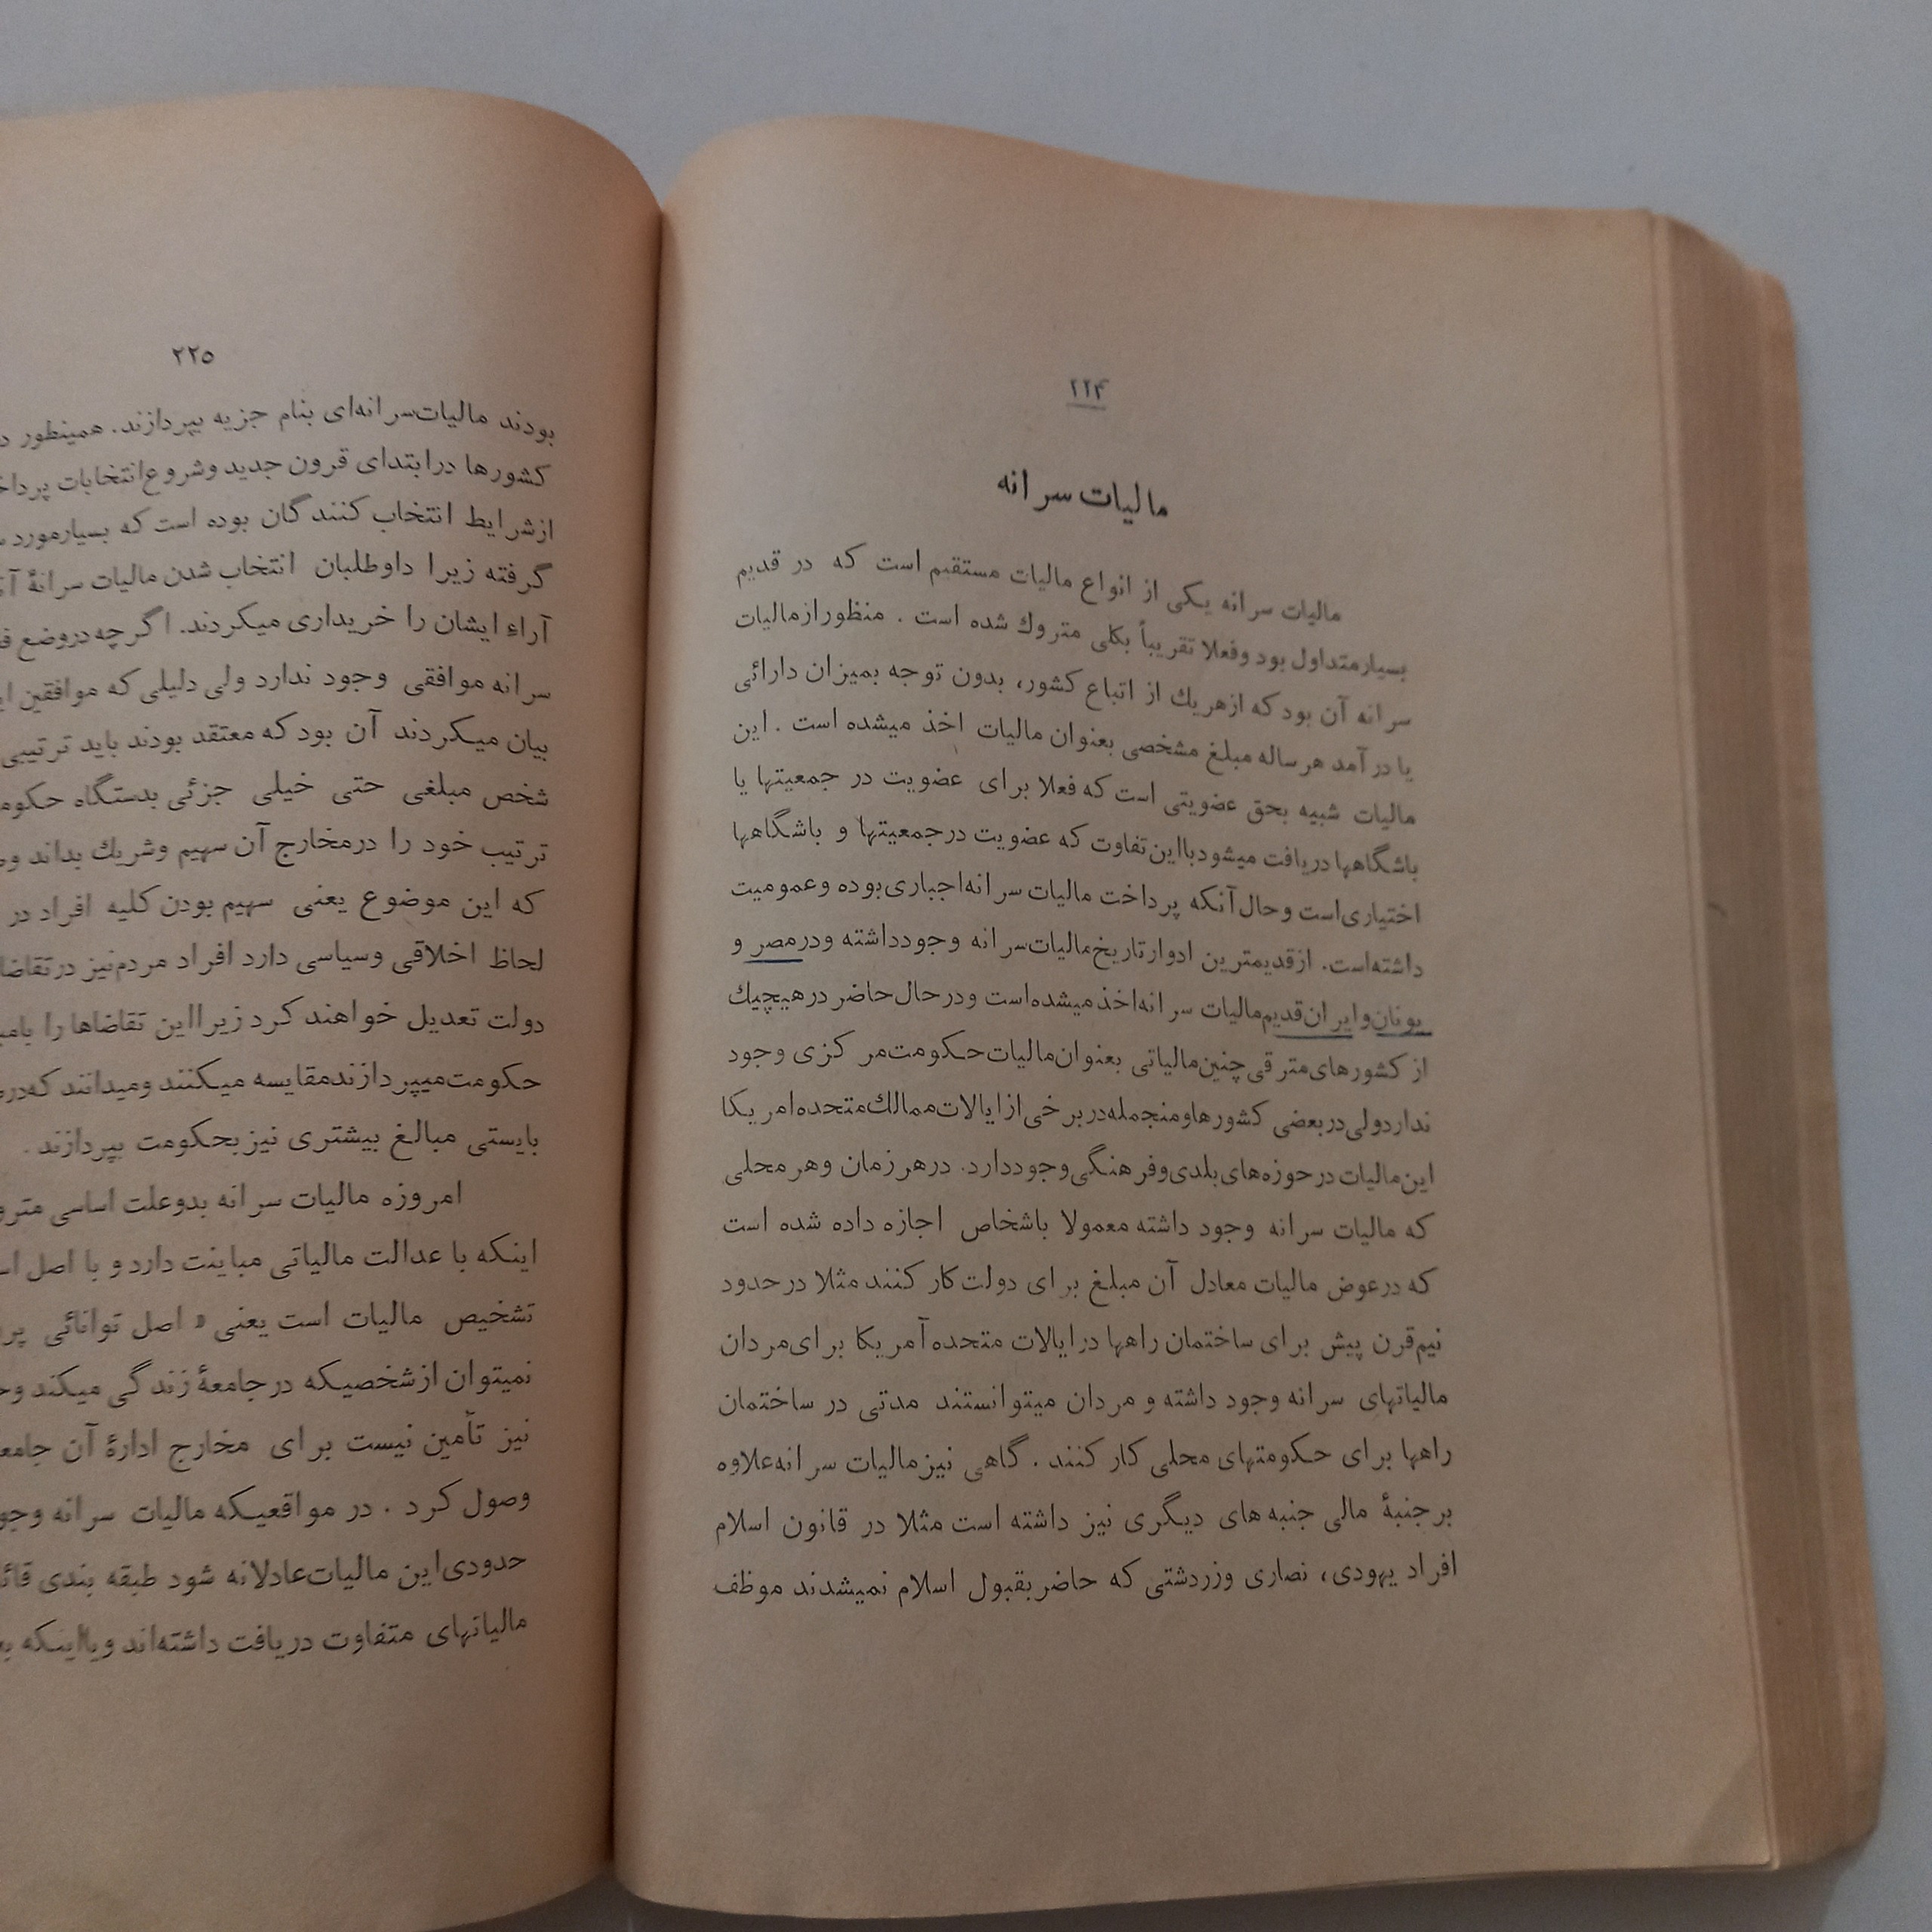 ۲۲۴
مالیات سرانه
مالیات سرانه یکی از انواع مالیات مستقیم است که در قدیم
بسیارمتداول بود وفعلا تقریباً بکلی متروك شده است . منظورازمالیات
سرانه آن بود که ازهریك از اتباع کشور، بدون توجه بمیزان دارائی
یا درآمد هرساله مبلغ مشخصی بعنوان مالیات اخذ میشده است . این
مالیات شبیه بحق عضویتی است که فعلا برای عضویت در جمعیتها یا
باشگاهها دریافت میشود بااین تفاوت که عضویت درجمعیتها و باشگاهها
اختیاری است وحال آنکه پرداخت مالیات سرانه اجباری بوده وعمومیت
داشته است. ازقدیمترین ادوارتاریخ مالیات سرانه وجودداشته ودرمصر و
یونان وایران قدیم مالیات سرانه اخذ میشده است ودرحال حاضر درهیچیك
از کشورهای مترقی چنین مالیاتی بعنوان مالیات حکومت مرکزی وجود
نداردولی دربعضی کشورهاومنجمله دربرخی ازایالات ممالك متحده امریکا
این مالیات درحوزه های بلدی وفرهنگی وجوددارد. درهرزمان وهرمحلی
که مالیات سرانه وجود داشته معمولا باشخاص اجازه داده شده است
که درعوض مالیات معادل آن مبلغ برای دولت کار کنند مثلا درحدود
نیم قرن پیش برای ساختمان راهها درایالات متحده آمریکا برای مردان
مالیاتهای سرانه وجود داشته و مردان میتوانستند مدتی در ساختمان
راهها برای حکومتهای محلی کار کنند . گاهی نیزمالیات سرانه علاوه
برجنبهٔ مالی جنبه های دیگری نیز داشته است مثلا در قانون اسلام
افراد یهودی، نصاری وزردشتی که حاضربقبول اسلام نمیشدند موظف
۲۲۵
بودند مالیات سرانه‌ای بنام جزیه بپردازند. همینطور
کشورها درابتدای قرون جدید وشروع انتخابات
ازشرایط انتخاب کنندگان بوده است که بسیارمورد
گرفته زیرا داوطلبان انتخاب شدن مالیات سرانهٔ
آراء ایشان را خریداری میکردند. اگرچه دروضع
سرانه موافقی وجود ندارد ولی دلیلی که موافقین
بیان میکردند آن بود که معتقد بودند باید ترتیبی
شخص مبلغی حتی خیلی جزئی بدستگاه
ترتیب خود را درمخارج آن سهیم وشریك بداند
که این موضوع یعنی سهیم بودن کلیه افراد در
لحاظ اخلاقی وسیاسی دارد افراد مردم نیز
دولت تعدیل خواهند کرد زیرااین تقاضاها را
حکومت میپردازندمقایسه میکنند ومیدانند
بایستی مبالغ بیشتری نیزبحکومت بپردازند .
امروزه مالیات سرانه بدوعلت اساسی
اینکه با عدالت مالیاتی مباینت دارد و با اصل
تشخیص مالیات است یعنی « اصل توانائی
نمیتوان ازشخصیکه درجامعهٔ زندگی میکند
نیز تأمین نیست برای مخارج ادارهٔ آن
وصول کرد . در مواقعیکه مالیات سرانه
حدودی این مالیات عادلانه شود طبقه بندی
مالیاتهای متفاوت دریافت داشته‌اند ویااینکه